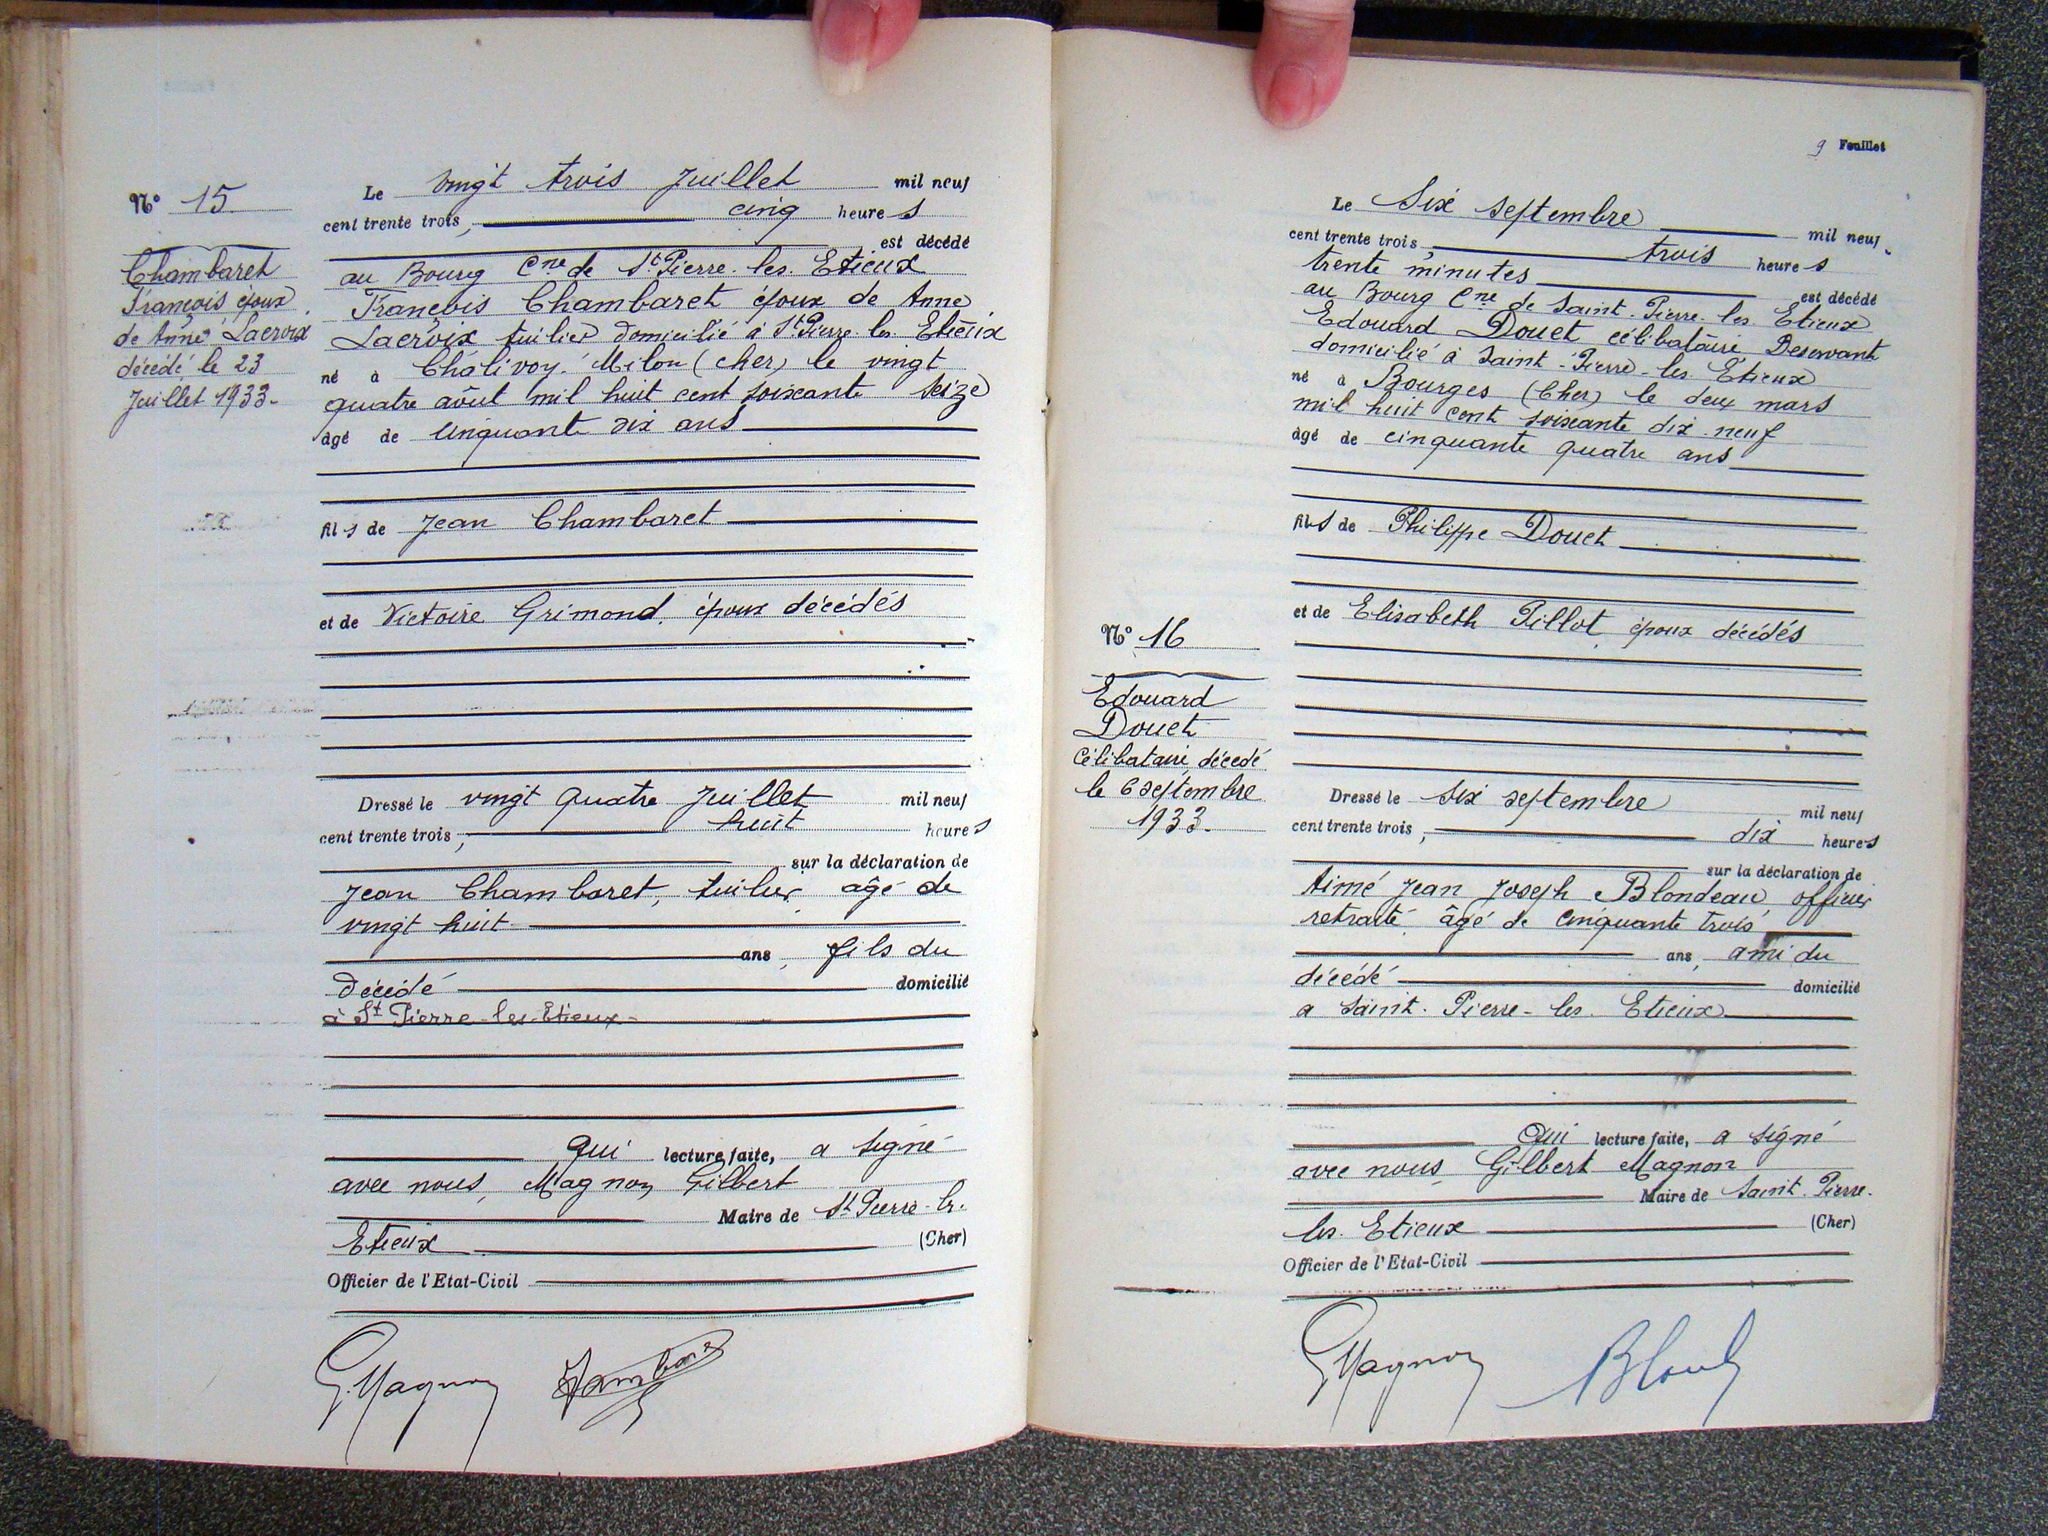 Nº 15
Chambaret
François époux
de Anne Lacroix
décédé le 23
Juillet 1933.
Le vingt trois Juillet mil neuf
cent trente trois, cinq heures
est décédé
au Bourg Cne de St Pierre-les-Etieux
François Chambaret époux de Anne
Lacroix tuilier domicilié à St Pierre-les-Etieux
né à Chalivoy-Milon (Cher) le vingt
quatre août mil huit cent soixante seize
âgé de cinquante six ans
fils de Jean Chambaret
et de Victoire Grimond, époux décédés
Dressé le vingt quatre Juillet mil neuf
cent trente trois, huit heures
sur la déclaration de
Jean Chambaret, tuilier, âgé de
vingt huit
ans, fils du
décédé domicilié
à St Pierre-les-Etieux
qui lecture faite, a signé
avec nous, Magnon Gilbert
Maire de St Pierre-les-
Etieux (Cher)
Officier de l'Etat-Civil
GMagnon
9 Feuillet
Nº 16
Edouard
Douet
Célibataire décédé
le 6 septembre
1933.
Le Six septembre mil neuf
cent trente trois, trois heures
trente minutes est décédé
au Bourg Cne de Saint-Pierre-les-Etieux
Edouard Douet célibataire Desservant
domicilié à Saint-Pierre-les-Etieux
né à Bourges (Cher) le deux mars
mil huit cent soixante dix-neuf
âgé de cinquante quatre ans
fils de Philippe Douet
et de Elisabeth Pillot, époux décédés
Dressé le six septembre mil neuf
cent trente trois, dix heures
sur la déclaration de
Aimé Jean Joseph Blondeau officier
retraité, âgé de cinquante trois
ans, ami du
décédé domicilié
a Saint-Pierre-les-Etieux
Qui lecture faite, a signé
avec nous, Gilbert Magnon
Maire de Saint-Pierre-
les-Etieux (Cher)
Officier de l'Etat-Civil
GMagnon